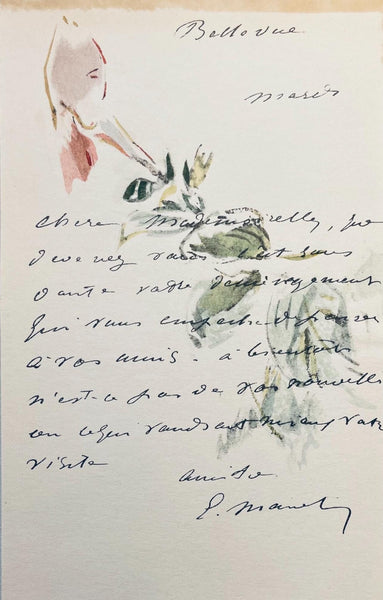 Bellevue
mardi
chère Mademoiselle, que
devenez vous c'est sans
doute votre déménagement
qui vous empêche de penser
à vos amis - à bientôt
n'est-ce pas de vos nouvelles
ou ce qui vaudrait mieux votre
visite
amitié
E. Manet